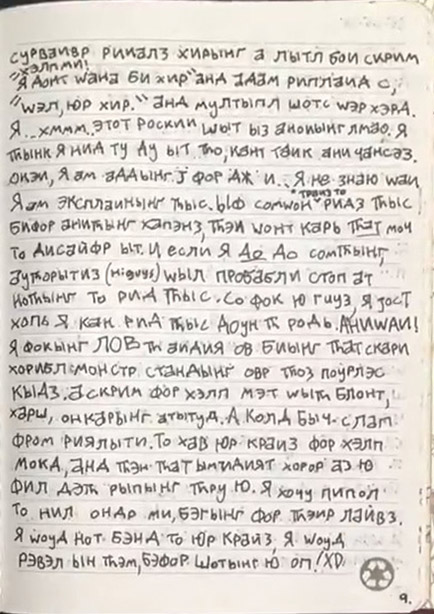 сурваивр риналз хирынг а лытл бои скрим
"хэлпми!
"Я донт wана би хир" анд адам риплаид с,
"wэл, юр хир." анд мултыпл шотс wэр хэрд.
Я...хммм. этот роскии шыт ыз анойынг лмао. Я
тhынк Я нид ту ду ыт тhо, кант таик ани чансэз.
окэи, Я ам аддынг j фор дж и... Я не знаю wаи
Я ам эксплаинынг тhыс. ыф сомwон *траиз то ридз тhыс
бифор анитhынг хапэнз, тhэи wонт карь тhат моч
то дисайфр ыт. И если Я до до сомтhынг,
аутhорытиз (higuys) wыл пробабли стоп ат
нотhынг то рид тhыс. Со фок ю гиуз, Я дост
хопь Я кан рид тhыс доун тh родь. АНИWАИ!
Я фокынг ЛОВ тh аидия ов биынг тhат скари
хорибл монстр стандынг овр тhоз поурлэс
кыдз. а скрим фор хэлп мэт wытh блонт,
харш, онкарынг атытуд. А колд быч-слап
фром риялыти. То хав юр краиз фор хэлп
мокд, анд тhэн тhат ымидият хорор аз ю
фил дэтh рыпынг тhру ю. Я хочу пипол
то нил ондр ми, бэгынг фор тhэир лайвз.
Я wоуд нот бэнд то юр краиз, Я wоуд
рэвэл ын тhэм, бэфор шотынг ю оп! XD
9.